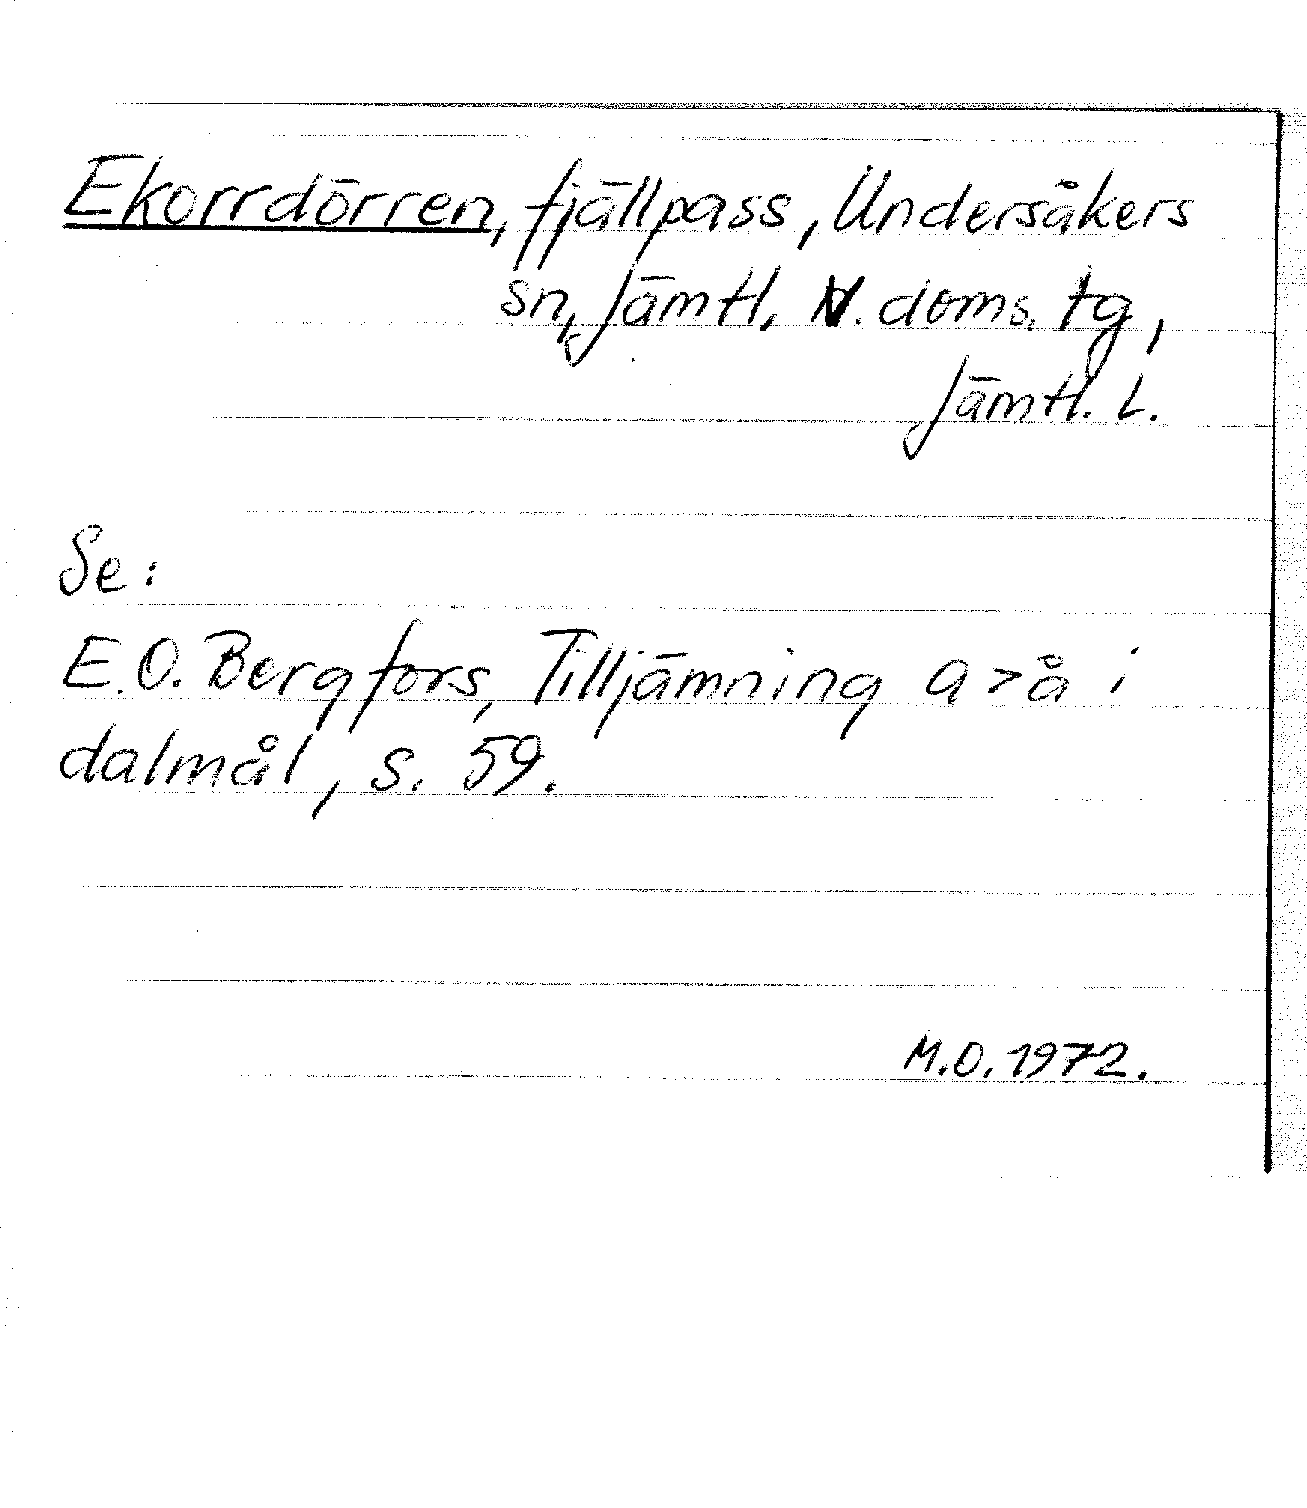 Ekorrdörren, fjällpass, Undersåkers
sn, Jämtl. V. doms. tg,
Jämtl. L.
Se:
E.O. Bergfors, Tilljämning a>å i
dalmål, s. 59.
M.O. 1972.